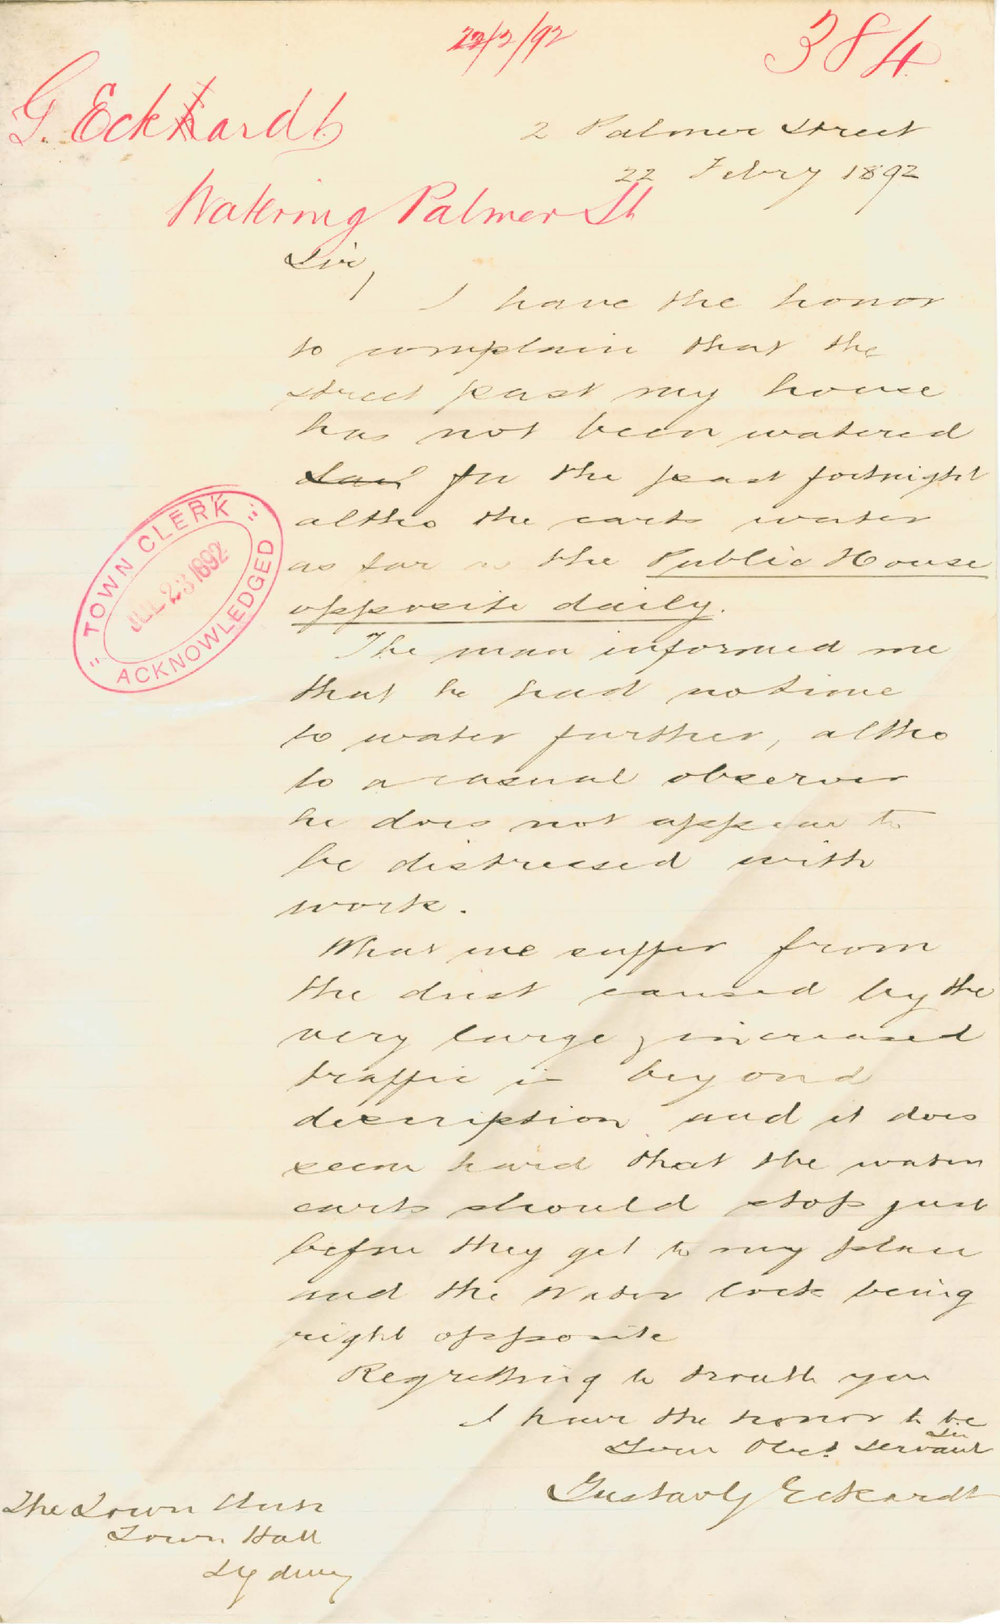 22/2/92
384
G. Eckhardt
2 Palmer Street
22 Febry 1892
Watering Palmer St
Sir,
I have the honor
to complain that the
street past my house
has not been watered
for the past fortnight
altho the carts water
as far as the Public House
opposite daily.
"TOWN CLERK"
23 1892
ACKNOWLEDGED
The man informed me
that he had no time
to water further, altho
to a casual observer
he does not appear to
be distressed with
work.
What we suffer from
the dust caused by the
very large & increased
traffic is beyond
description and it does
seem hard that the water
carts should stop just
before they get to my place
and the Water Cock being
right opposite
Regretting to trouble you
I have the honor to be
Sir
Your Obed Servant
Gustav G Eckardt
The Town Clerk
Town Hall
Sydney